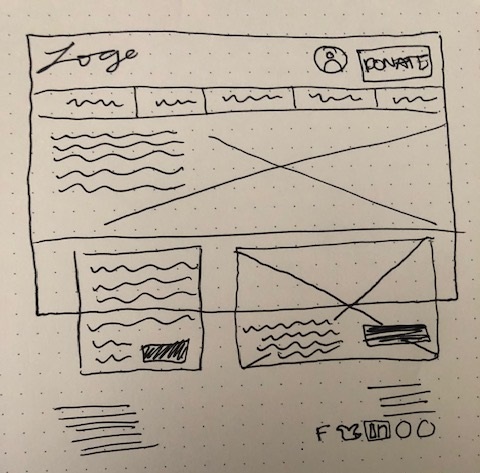 Logo
DONATE
F in